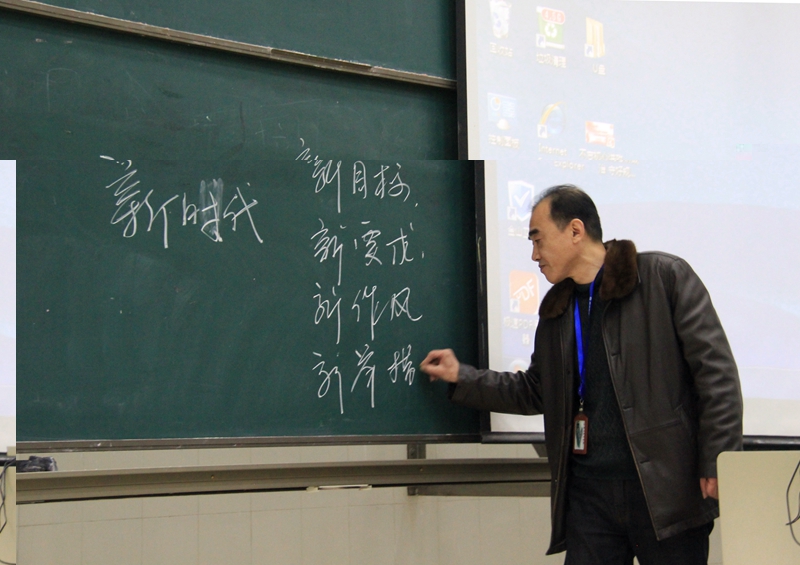 新时代
新目标、
新要求、
新作风
新举措
Internet
Explorer
PDF